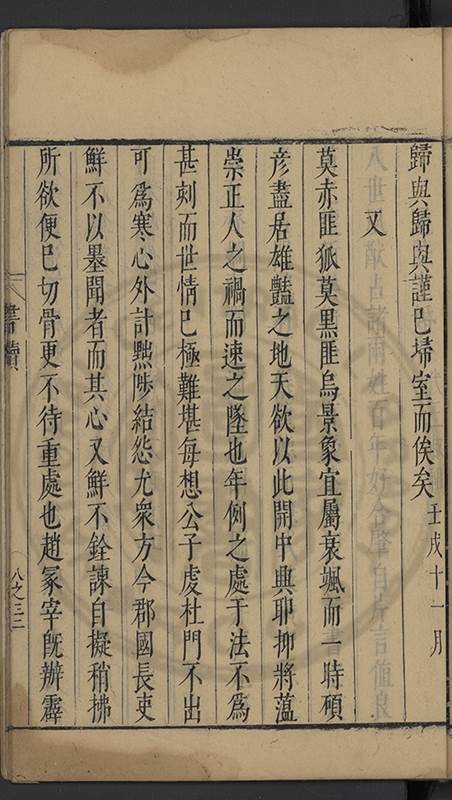 歸與歸與謹已埽室而俟矣壬戌十一月
又
莫赤匪狐莫黑匪烏景象宜屬衰颯而一時碩
彥盡居雄豔之地天欲以此開中興耶抑將薀
崇正人之禍而速之墜也年例之處于法不為
甚刻而世情已極難堪每想公子虔杜門不出
可為寒心外計黜陟結怨尤衆方今郡國長吏
鮮不以墨聞者而其心又鮮不銓諫自擬稍拂
所欲便已切骨更不待重處也趙冢宰旣辦霹
書牘
八之三三